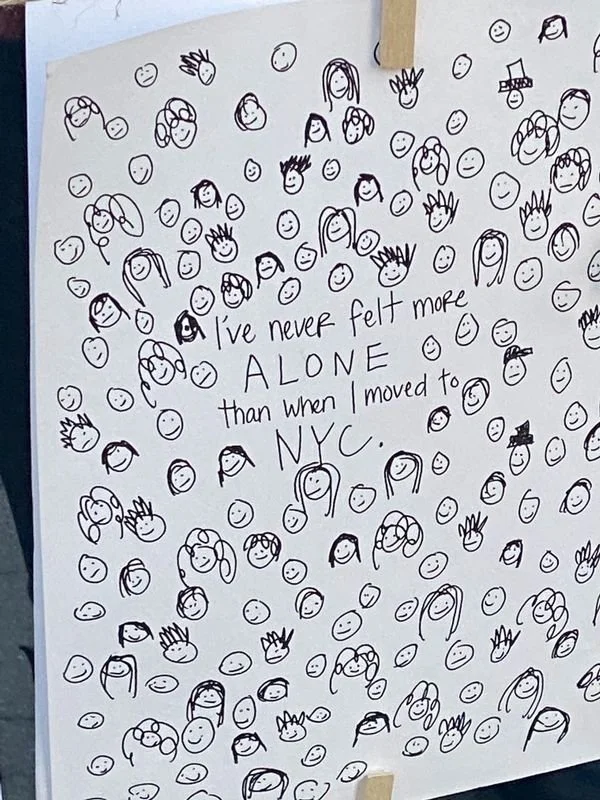 I've never felt more
ALONE
than when I moved to
NYC.